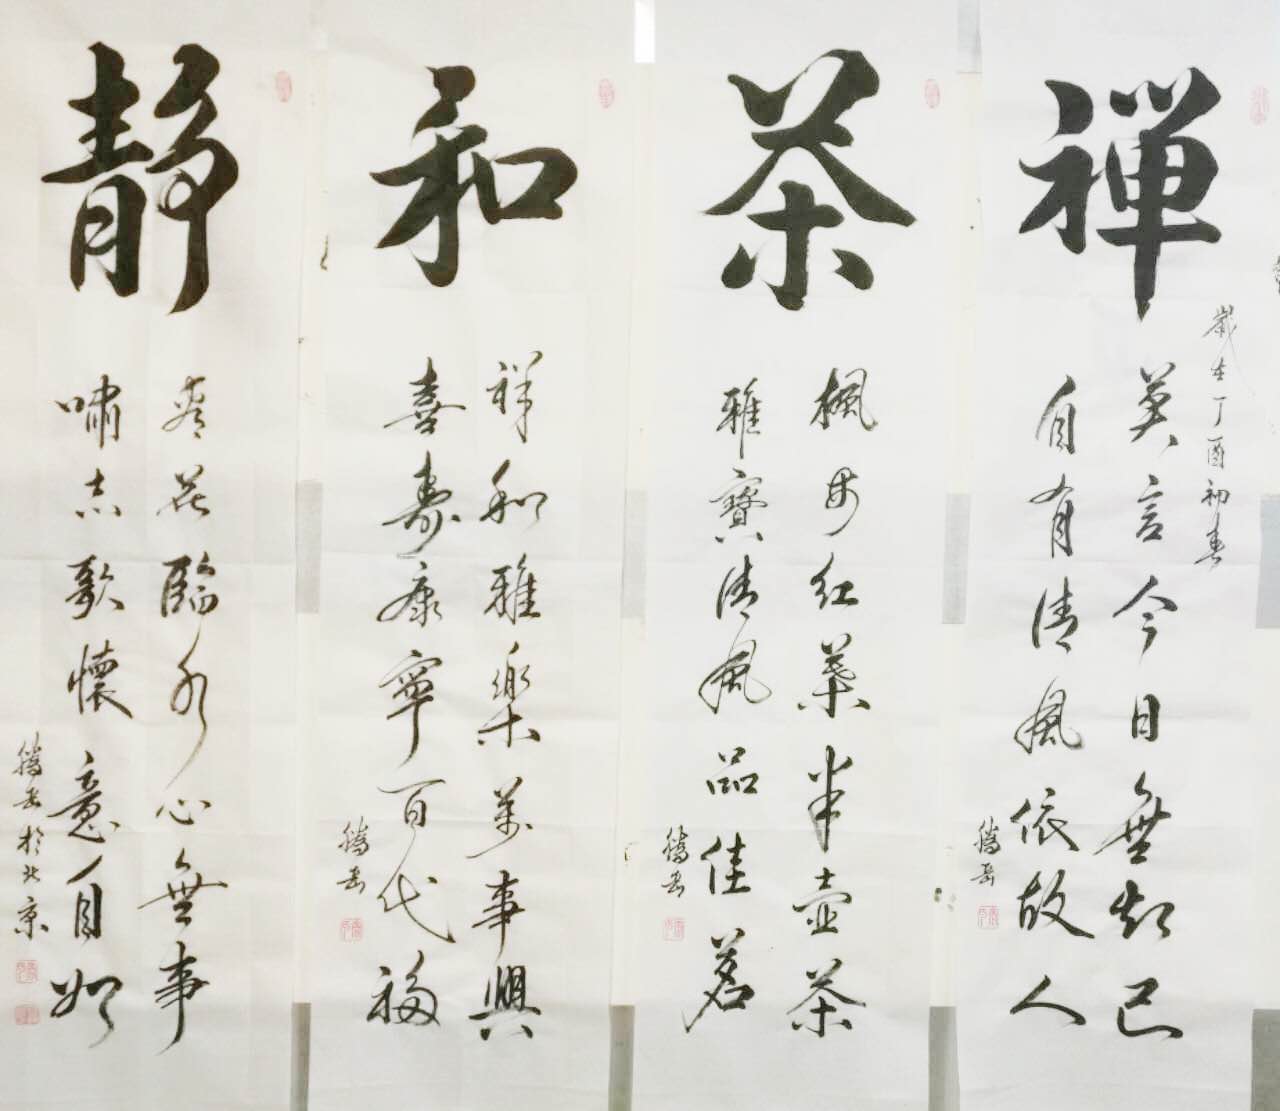 禅
歲在丁酉初春
莫言今日無知己
自有清風依故人
騰岳
茶
楓 红葉半壺茶
雅寶清風品佳茗
騰岳
和
祥和雅樂萬事興
喜壽康寧百代福
騰岳
静
看花臨水心無事
嘯志歌懷意自如
騰岳於北京